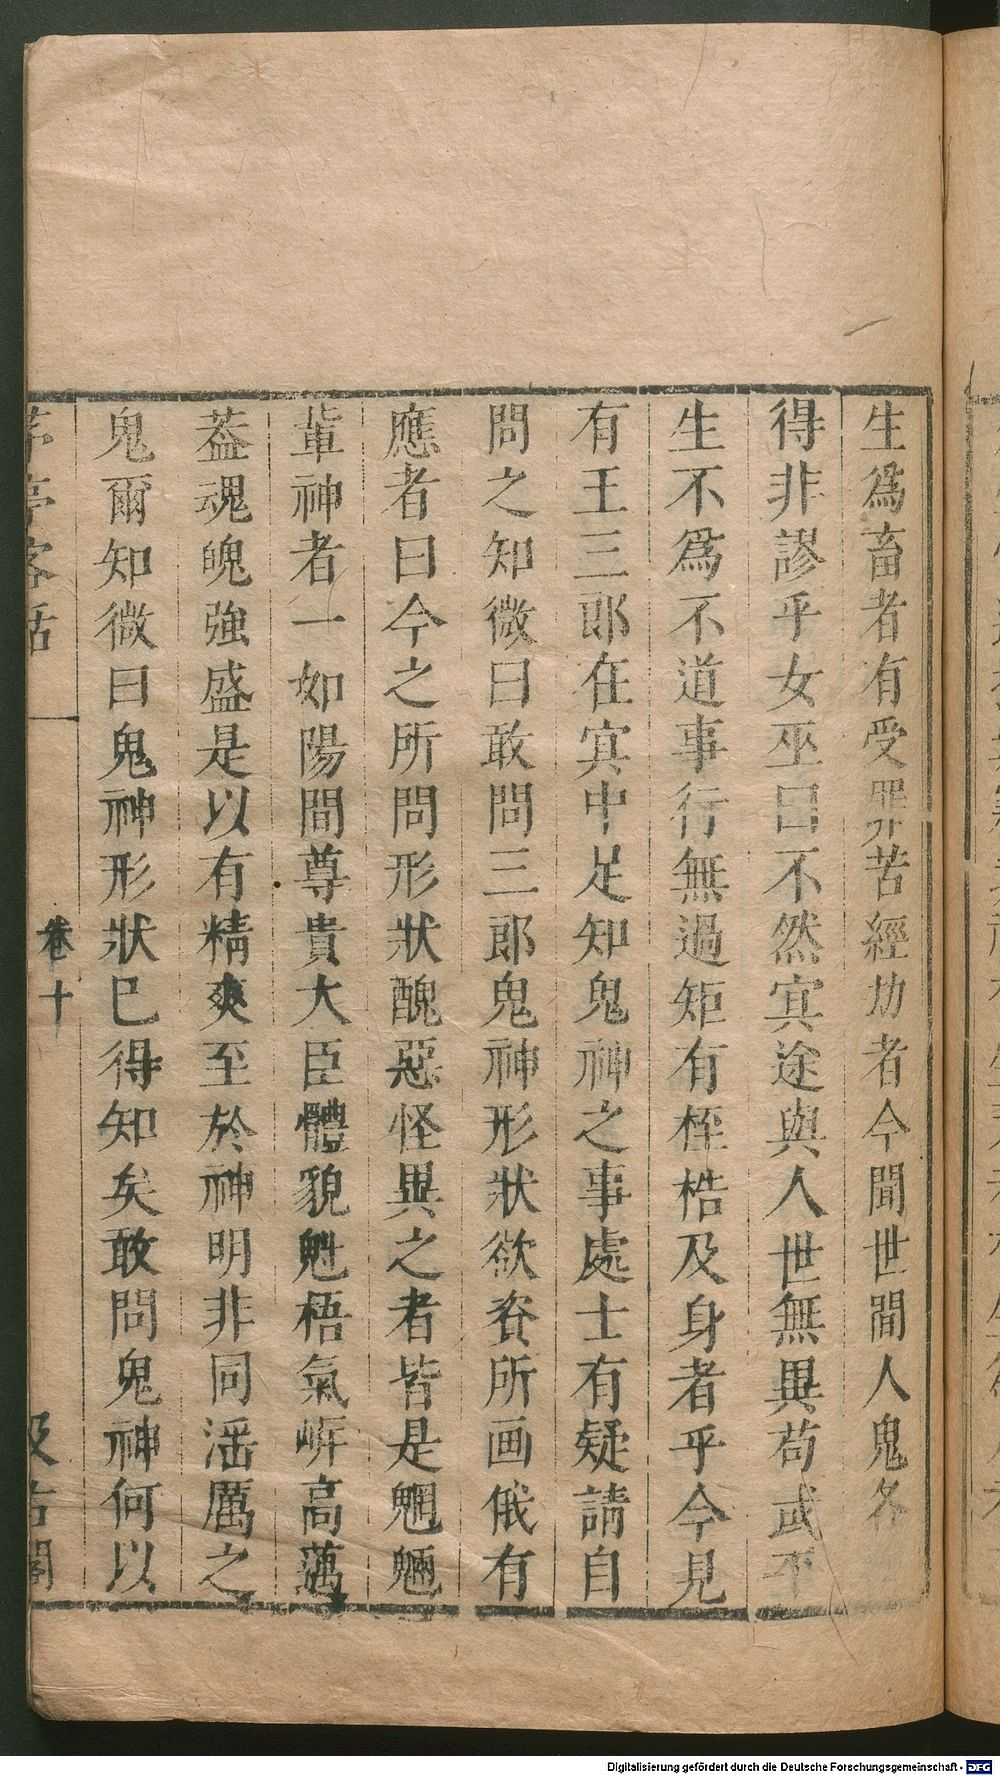 生爲畜者有受罪苦經劫者今聞世間人鬼各
得非謬乎女巫曰不然㝠途與人世無異苟或平
生不爲不道事行無過矩有桎梏及身者乎今見
有王三郎在㝠中足知鬼神之事處士有疑請自
問之知微曰敢問三郎鬼神形狀欲資所画俄有
應者曰今之所問形狀醜惡怪異之者皆是魍魎
輩神者一如陽間尊貴大臣體貌魁梧氣岸高邁
葢魂魄強盛是以有精爽至於神明非同淫厲之
鬼爾知微曰鬼神形狀已得知矣敢問鬼神何以
茅亭客話
卷十
汲古閣
Digitalisierung gefördert durch die Deutsche Forschungsgemeinschaft - DFG